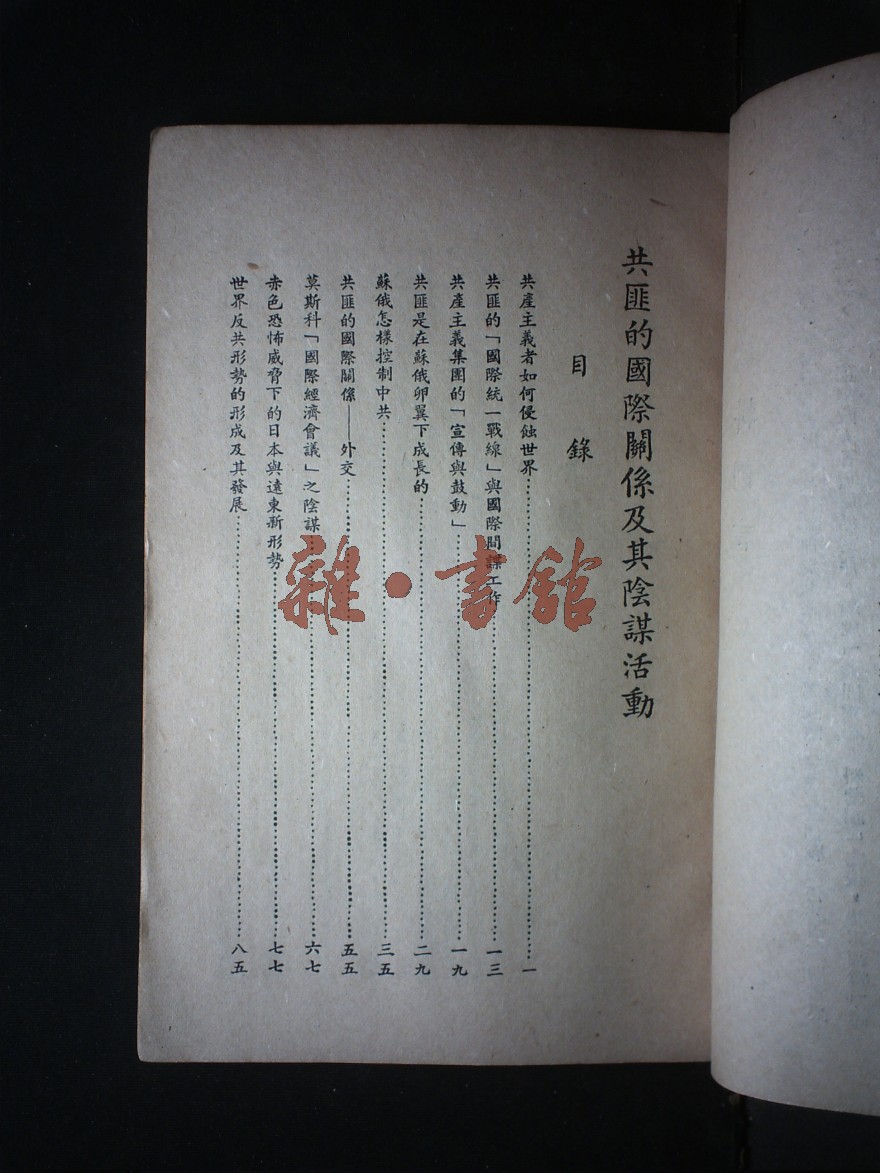 共匪的國際關係及其陰謀活動
目錄
共產主義者如何侵蝕世界……一
共匪的「國際統一戰線」與國際間諜工作……一三
共產主義集團的「宣傳與鼓動」……一九
共匪是在蘇俄卵翼下成長的……二九
蘇俄怎樣控制中共……三五
共匪的國際關係——外交……五五
莫斯科「國際經濟會議」之陰謀……六七
赤色恐怖威脅下的日本與遠東新形勢……七七
世界反共形勢的形成及其發展……八五
雜·書館